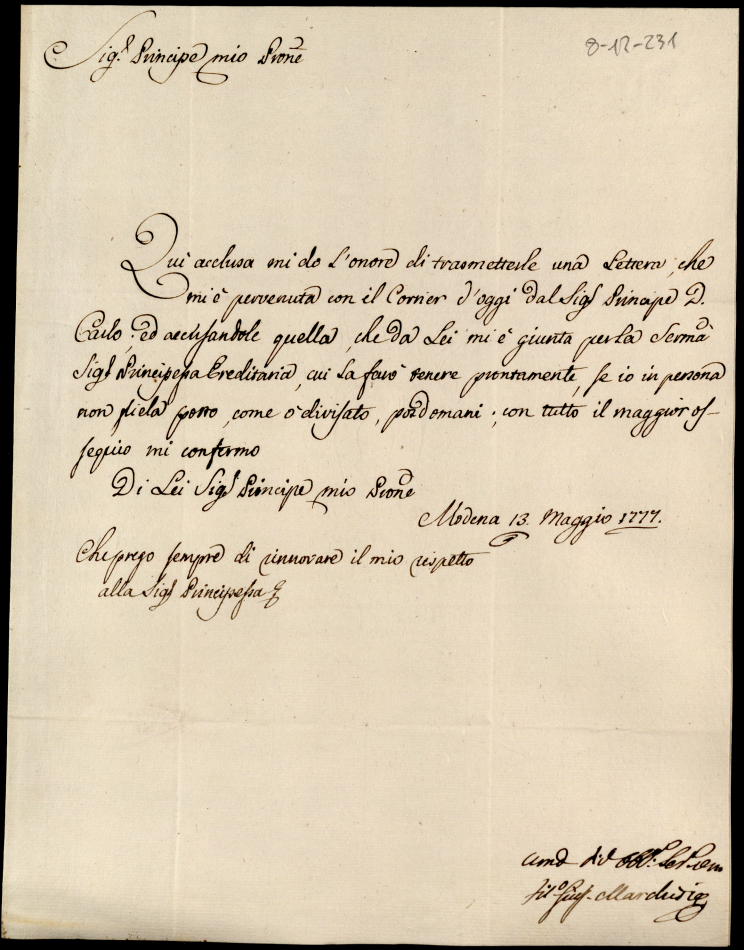 Sig.r Principe mio Prone
8-12-231
Qui acclusa mi do l'onore di trasmetterle una Lettera, che
mi è pervenuta con il Corrier d'oggi dal Sigr Principe D.
Carlo; ed accusandole quella, che da Lei mi è giunta per la Serma
Sigra Principessa Ereditaria, cui La farò tenere prontamente, se io in persona
non gliela porto, come ò divisato, posdomani; con tutto il maggior os-
sequio mi confermo
Di Lei Sigr Principe mio Prone
Modena 13. Maggio 1777.
Che prego sempre di rinnovare il mio rispetto
alla Sigra Principessa